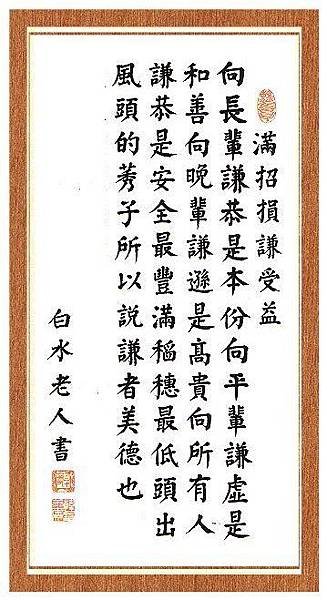 滿招損謙受益
向長輩謙恭是本份向平輩謙虛是
和善向晚輩謙遜是高貴向所有人
謙恭是安全最豐滿稻穗最低頭出
風頭的莠子所以說謙者美德也
白水老人書